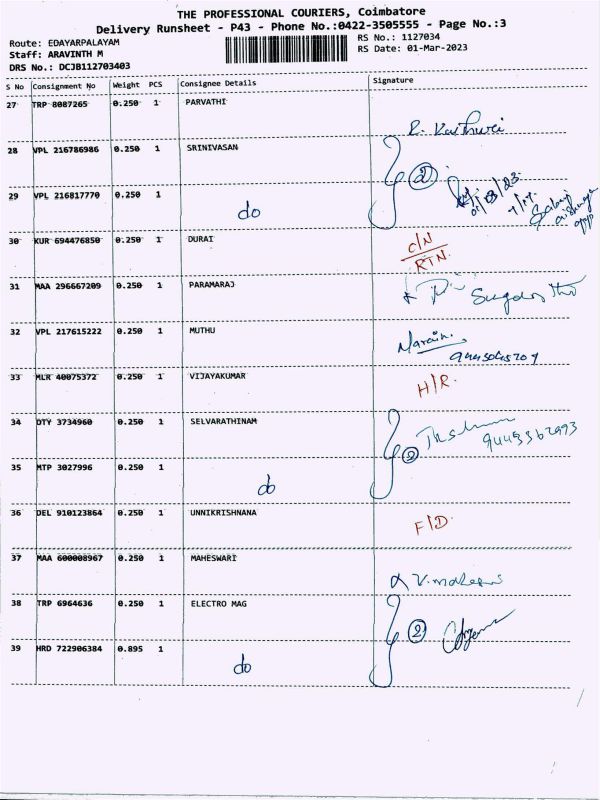 THE PROFESSIONAL COURIERS, Coimbatore
Delivery Runsheet - P43 - Phone No.:0422-3505555 - Page No.:3
Route: EDAYARPALAYAM
Staff: ARAVINTH M
DRS No.: DCJB112703403
RS No.: 1127034
RS Date: 01-Mar-2023
S No Consignment No Weight PCS Consignee Details Signature
27 TRP 8087265 0.250 1 PARVATHI
28 VPL 216786986 0.250 1 SRINIVASAN 2
29 VPL 216817770 0.250 1 do
30 KUR 694476850 0.250 1 DURAI C/N RTN.
31 MAA 296667209 0.250 1 PARAMARAJ
32 VPL 217615222 0.250 1 MUTHU
33 MLR 40075372 0.250 1 VIJAYAKUMAR H/R.
34 DTY 3734960 0.250 1 SELVARATHINAM 2
35 MTP 3027996 0.250 1 do
36 DEL 910123864 0.250 1 UNNIKRISHNANA F/D.
37 MAA 600008967 0.250 1 MAHESWARI
38 TRP 6964636 0.250 1 ELECTRO MAG 2
39 HRD 722906384 0.895 1 do